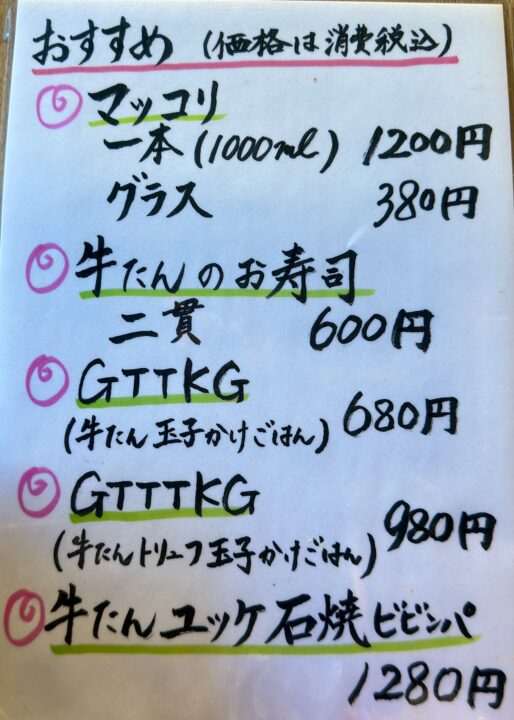 おすすめ (価格は消費税込)
マッコリ
一本(1000ml) 1200円
グラス 380円
牛たんのお寿司
二貫 600円
GTTKG
(牛たん玉子かけごはん) 680円
GTTTKG
(牛たんトリュフ玉子かけごはん) 980円
牛たんユッケ石焼ビビンパ
1280円